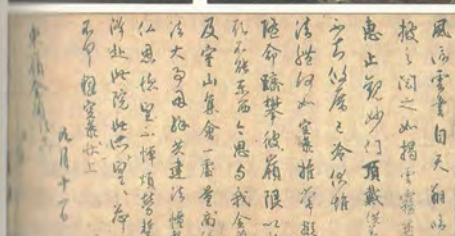 風信雲書自天翔臨
披之閲之如揭雲霧
惠止觀妙門頂戴供
不知攸厝已冷伏惟
法體何如空海推常擬
隨命躋攀彼嶺限以
願不能東西今思与我金
及室山集會一處量商
法大事因緣共建法幢
仏恩德望不憚煩勞蹔
降赴此院此所望々忩
不具釋空海狀上
九月十一日
東嶺金蘭